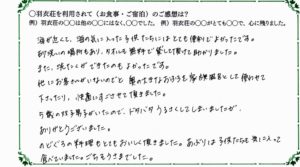 ○羽衣荘を利用されて（お食事・ご宿泊）のご感想は？
例）羽衣荘の○○が他の○○にはなく、○○でした。 例）羽衣荘の○○がとても○○で、心に残りました。
海が近くて、海の気に入った子供たちにはとても便利でよかったです。
砂場の場所もあり、タオルも無料で貸して頂けて助かりました。
また、ができたのもよかったです。
他にお客さんがいないのと、の大きなお部屋をとして使わせて
下さったり、快適にすごさせて頂きました。
5歳の双子男子がいたので、ドタバタうるさくしてしまいましたが、
ありがとうございました。
のどぐろの料理もとてもおいしく頂きました。あぶりは子供たちも気に入って
食べていました。ごちそうさまでした。